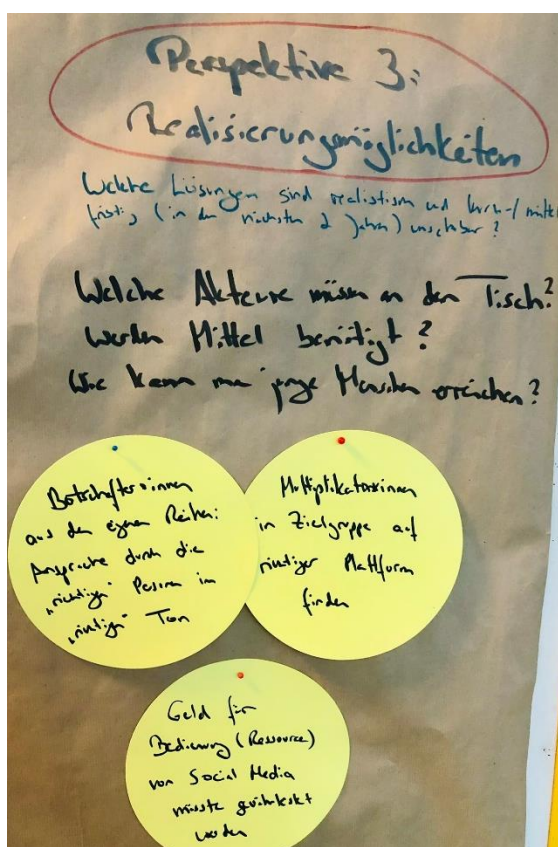 Perspektive 3:
Realisierungsmöglichkeiten
Welche Lösungen sind realistisch und kurz-/mittel
fristig (in den nächsten 2 Jahren) umsetzbar?
Welche Akteure müssen an den Tisch?
Werden Mittel benötigt?
Wie kann man junge Menschen erreichen?
Botschafter*innen
aus den eigenen Reihen:
Ansprache durch die
„richtigen" Personen im
„richtigen" Ton
Multiplikator*innen
in Zielgruppe auf
richtiger Plattform
finden
Geld für
Bedienung (Ressource)
von Social Media
müsste gewährleistet
werden